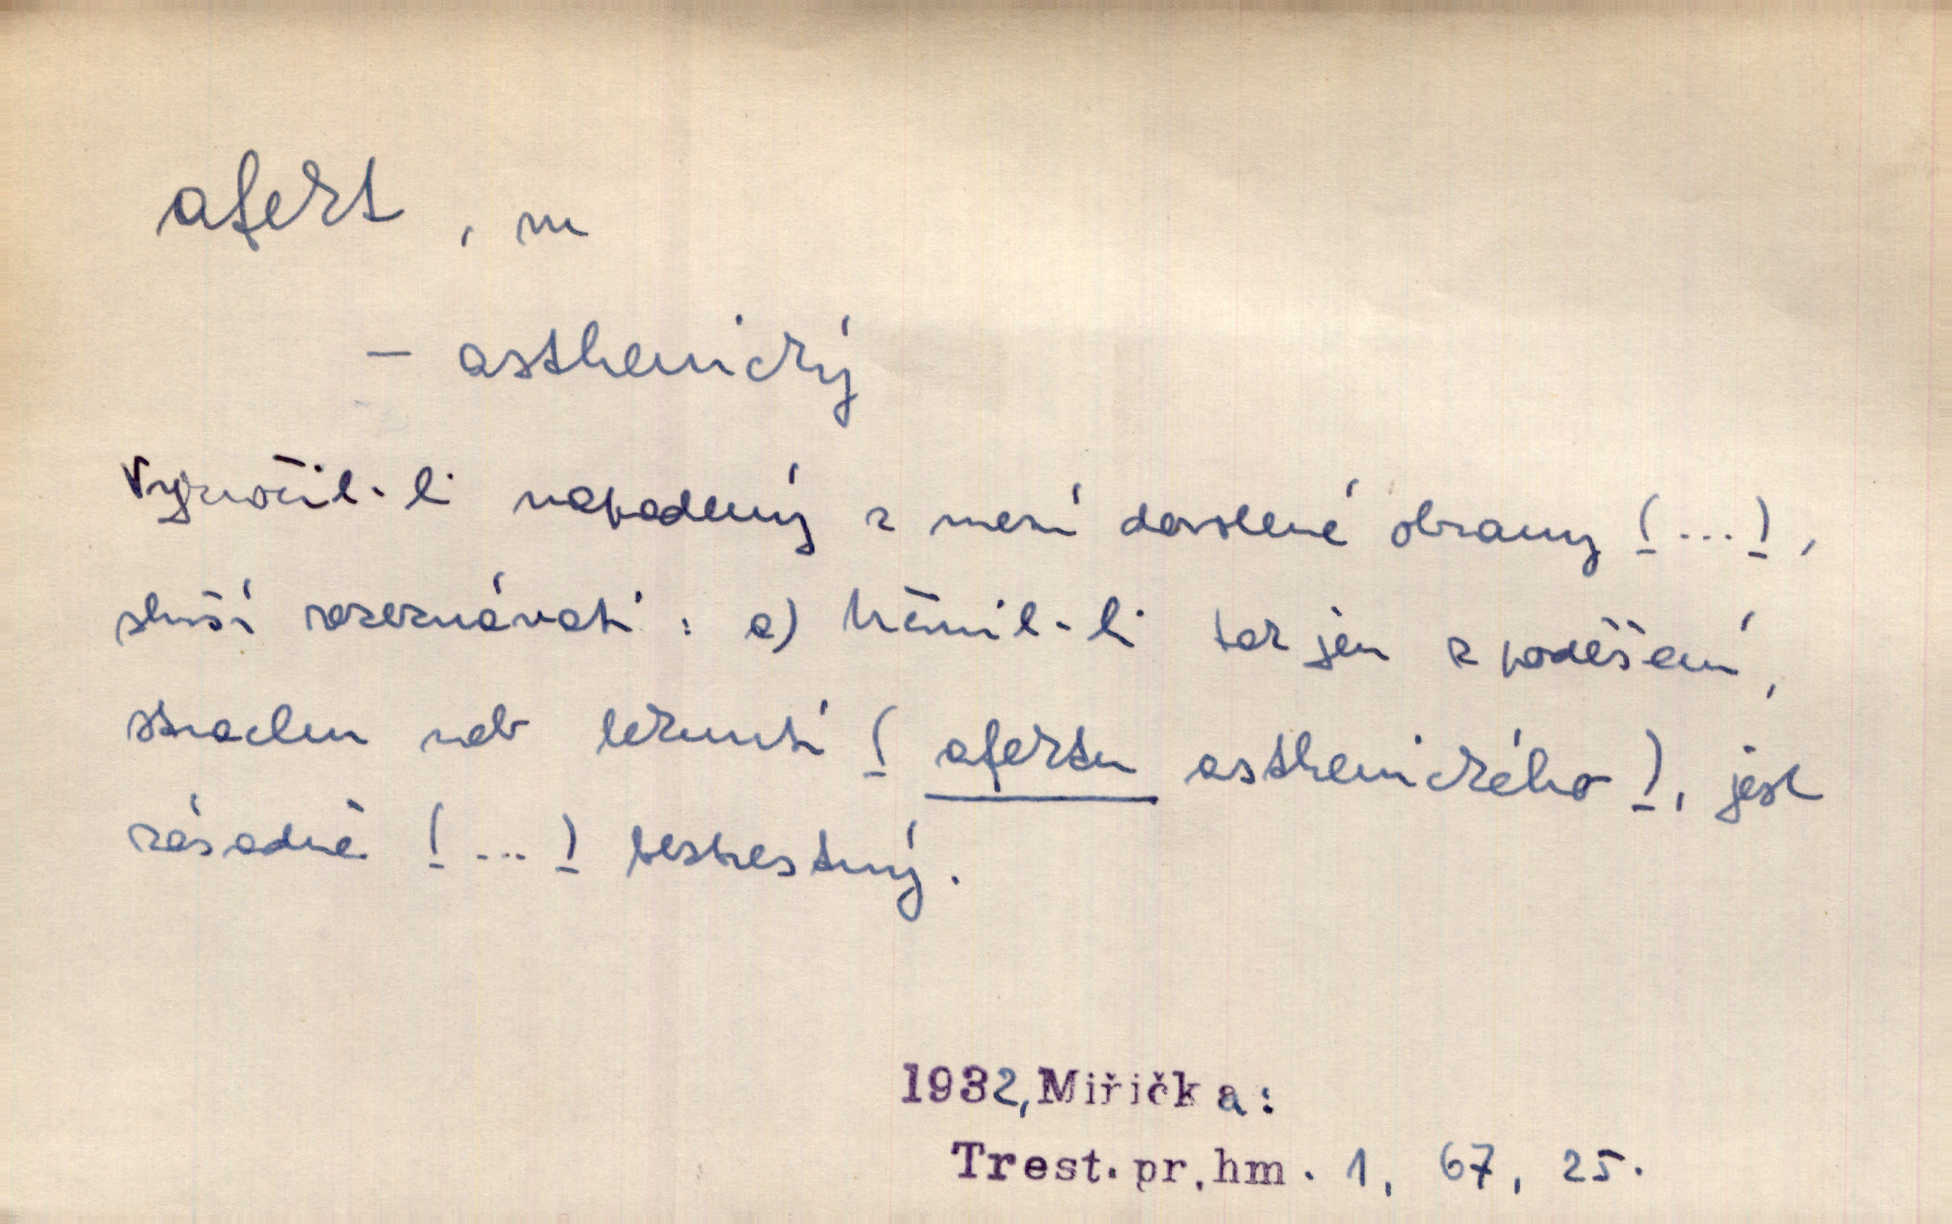 afekt, m
– asthenický
Vykročil-li napadený z mezí dovolené obrany (...),
sluší rozeznávati: a) Učinil-li tak jen z poděšení,
strachu neb leknutí (afektu asthenického), jest
zásadně (...) beztrestný.
1932, Miřička:
Trest. pr. hm. 1, 67, 25.